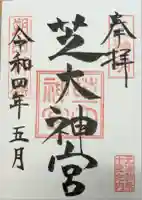 奉拝
芝大神宮
令和四年五月